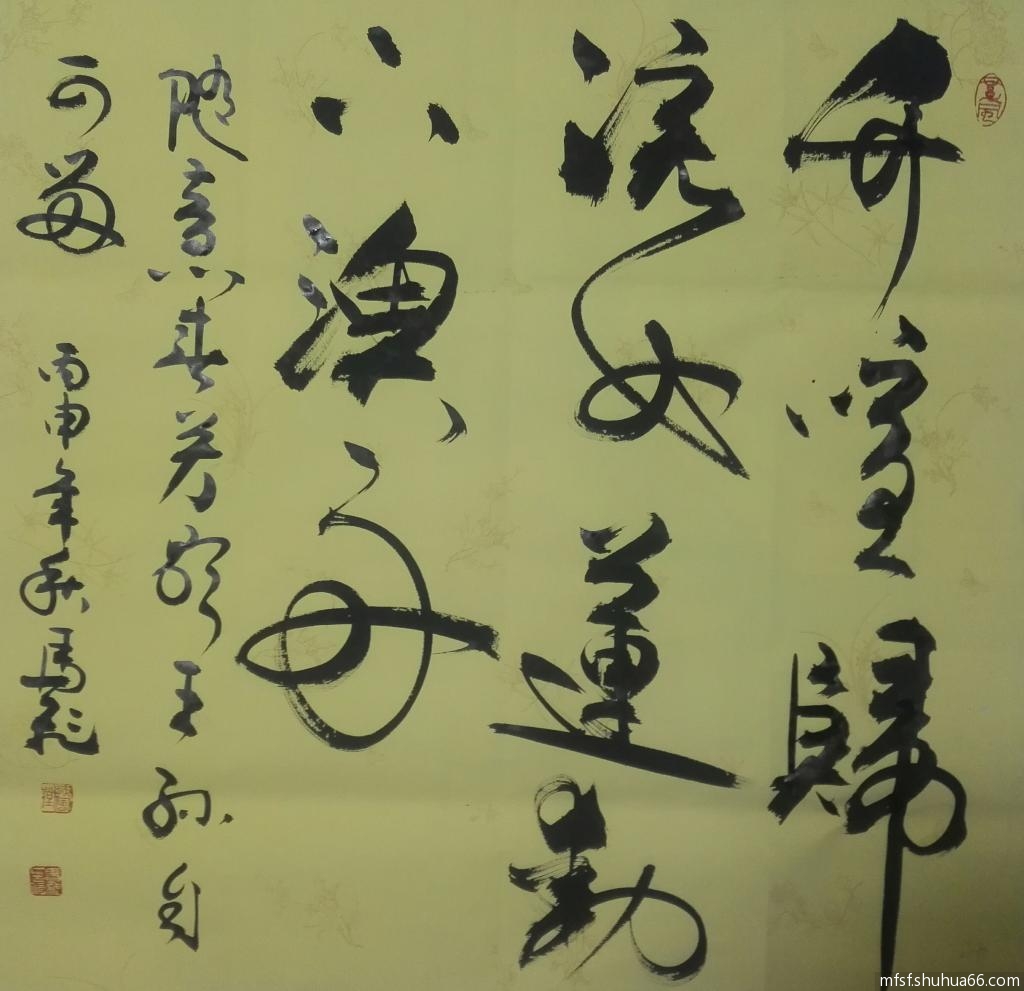 竹喧歸
浣女蓮動
下漁舟
随意春芳歇王孫自
可留 丙申年秋馬彪
mfsf.shuhua66.com